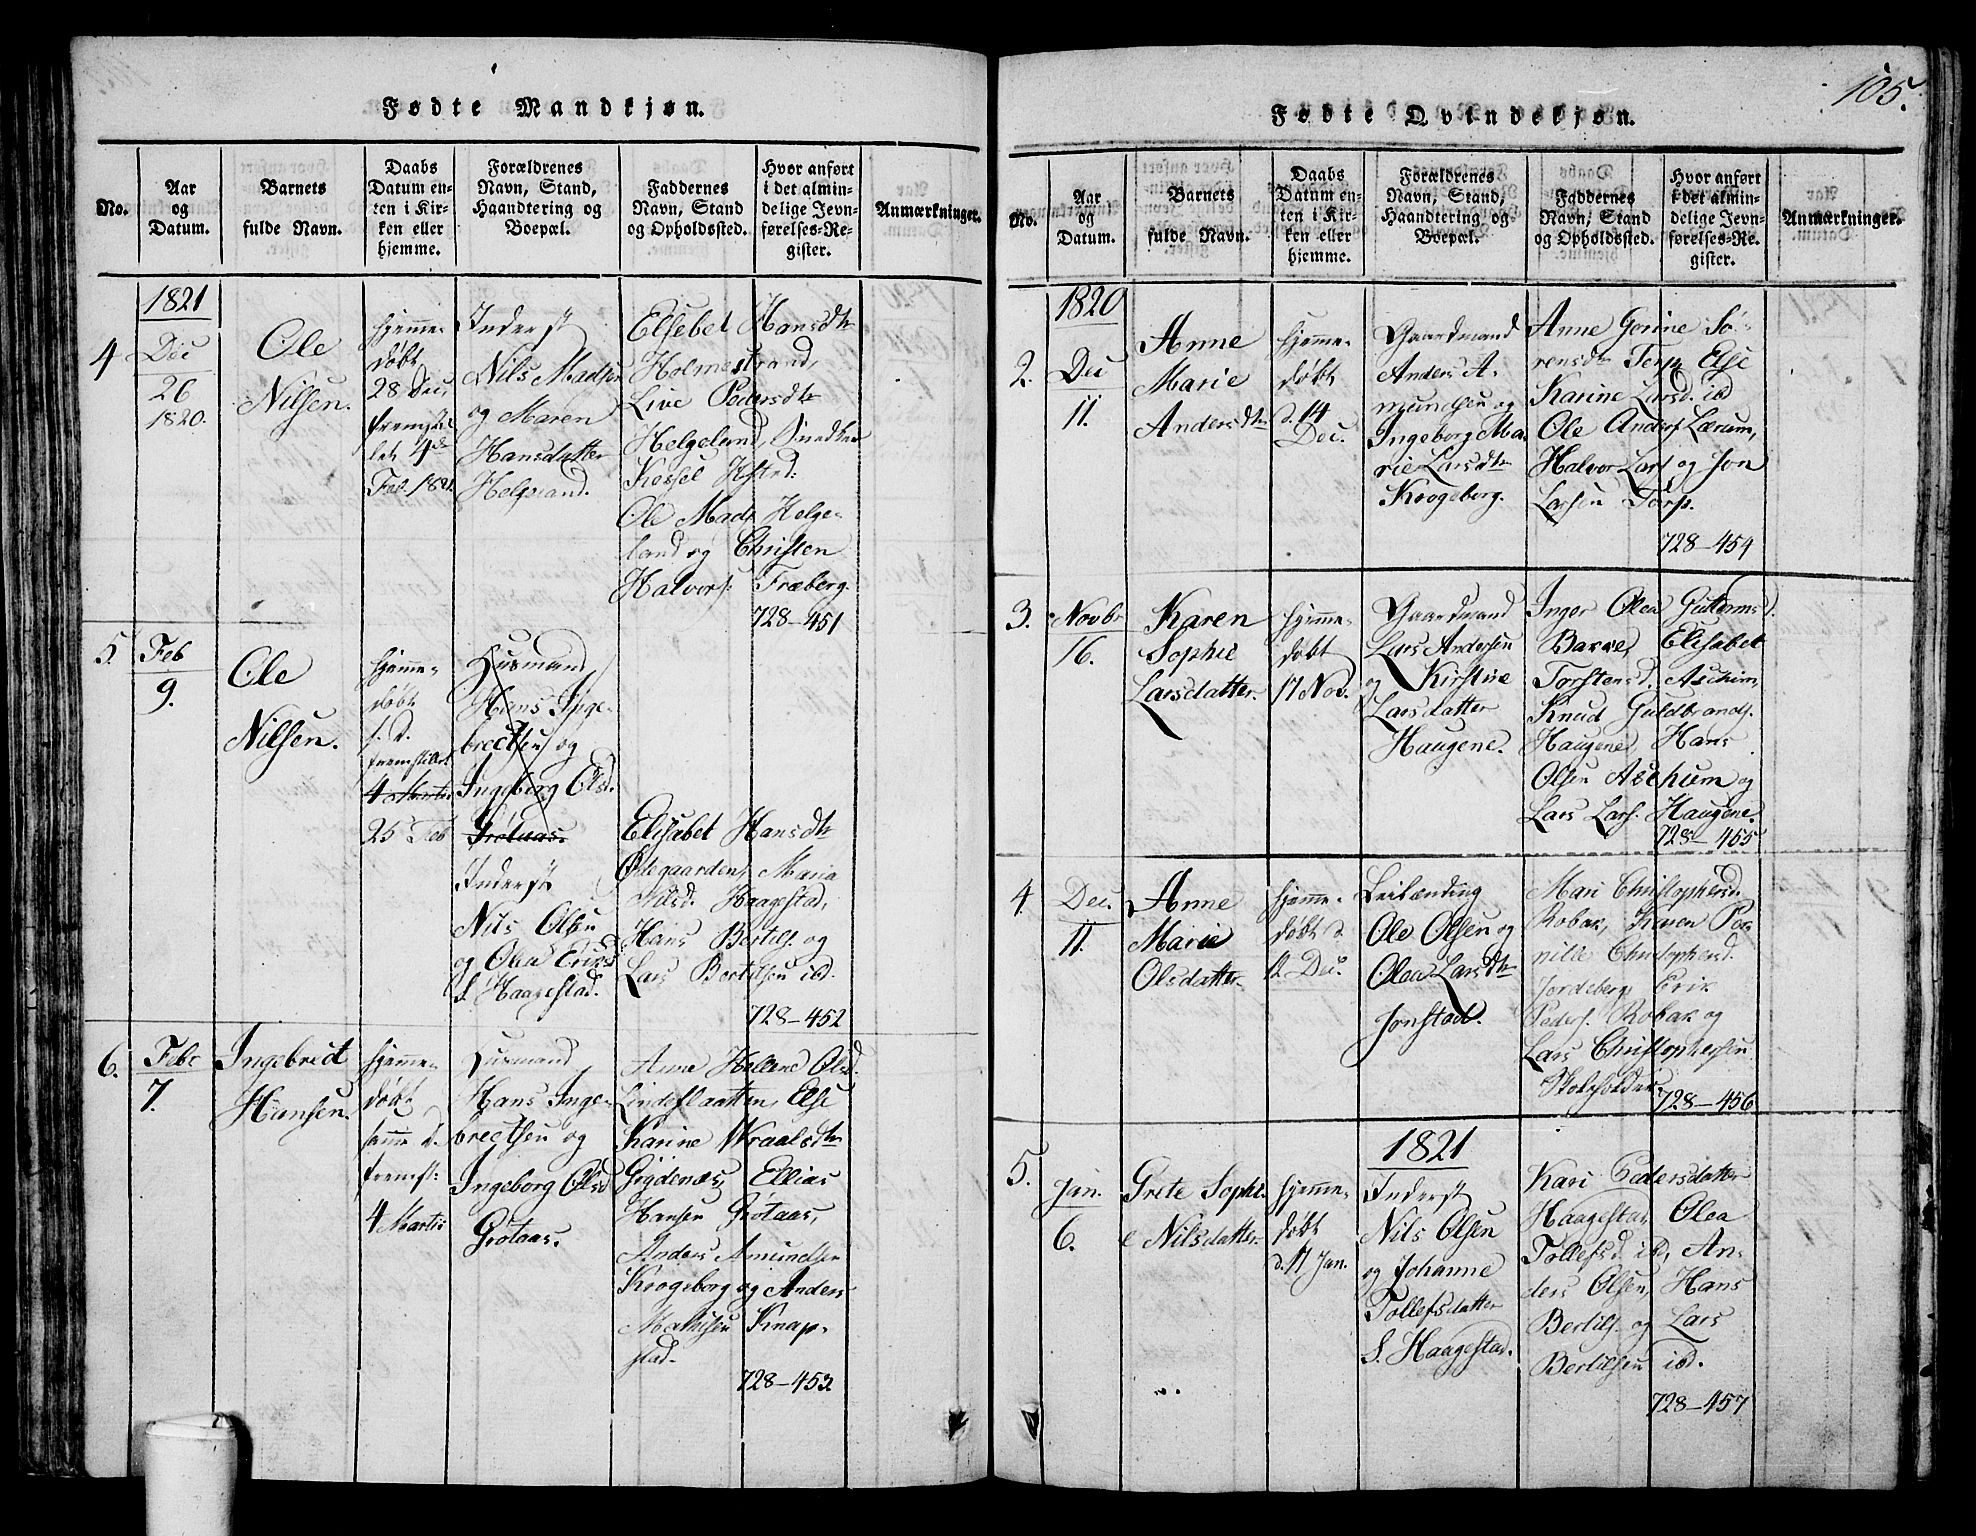 105.
Fødte Mandkjøn.
No.
Aar
og
Datum.
Barnets
fulde Navn.
Daabs
Datum en-
ten i Kir-
ken eller
hjemme.
Forældrenes
Navn, Stand,
Haandtering og
Boepæl.
Faddernes
Navn, Stand
og Opholdssted.
Hvor anført
i det almin-
delige Jevn-
førelses-Re-
gister.
Anmærkninger.
4
1821
Dec
26
1820.
Ole
Nilsen.
hjemme-
døbt
28 Dec,
fremstil
let 4de
Feb. 1821.
Inderst
Nils Madsen
og Maren
Hansdatter
Helgeland.
Elsebet Hansdtr
Holmestrand,
Live Pedersdtr
Helgeland, Snedker
Kossel
Ole Mads. Helge-
land og Christen
Halvors. Fræberg.
728-451
5.
Feb
9.
Ole
Nilsen.
hjemme-
døbt
s. d.
fremstillet
4 Martii
25 Feb
Husmand
Hans Inge-
brectsen og
Ingeborg Olsd.
Grötaas.
Inderst
Nils Olsen
og Olea Eriksd
S. Haagestad.
Elisabet Hansdtr
Ødegaarden, Maria
Nilsd. Haagestad,
Hans Bertils. og
Lars Bertilsen ibd.
728-452
6.
Febr
7.
Ingebrect
Hansen
hjemme-
døbt
samme d.
fremst.
4 Martii
Husmand
Hans Inge-
brectsen og
Ingeborg Olsd
Grötaas.
Anne Hellene Olsd.
Lindeflaatten, Else
Karine Wraalsdtr
Gigdenæs, Ellias
Hansen Grötaas,
Anders Amundsen
Krogeborg og Anders
Mathisen Knap-
stad.
728-453
Fødte Qvindekjøn.
No.
Aar
og
Datum.
Barnets
fulde Navn.
Daabs
Datum en-
ten i Kir-
ken eller
hjemme.
Forældrenes
Navn, Stand,
Haandtering og
Boepæl.
Faddernes
Navn, Stand
og Opholdssted.
Hvor anført
i det almin-
delige Jevn-
førelses-Re-
gister.
Anmærkninger.
1820
2.
Dec
11.
Anne
Marie
Andersdtr
hjemme-
døbt
d. 14
Dec.
Gaardmand
Anders A-
mundsen og
Ingeborg Ma-
rie Larsdtr
Krogeborg.
Anne Gorine Sö-
rensdtr Torp, Else
Karine Larsd. ibd
Ole Anders. Lærum,
Halvor Lars. og Jon
Larsen Torp.
728-454
3.
Novbr
16.
Karen
Sophie
Larsdatter.
hjemme-
døbt
17 Nov.
Gaardmand
Lars Andersen
og Kirstine
Larsdatter
Haugene.
Inger Olea Guttormsd.
Barre, Elisabet
Torstensd. Aschim,
Knud Guldbrands.
Haugene, Hans
Olsen Aschum og
Lars Lars. Haugene.
728-455
4.
Dec.
11.
Anne
Marie
Olsdatter.
hjemme-
døbt d.
12 Dec.
Leilænding
Ole Olsen og
Olea Larsdtr
Jonstad.
Mari Christophersd.
Robak, Karen Per-
nille Christophersd.
Jordeberg, Erik
Peders. Robak og
Lars Christophersen
Skoleholder.
728-456
1821
5.
Jan.
6.
Grete Sophi-
e Nilsdatter.
hjemme-
døbt
d. 11 Jan.
Inderst
Nils Olsen
og Johanne
Tollefsdatter
S. Haagestad.
Kari Pedersdatter
Haagestad, Olea
Tollefsd. ibd, An-
ders Olsen, Hans
Bertils. og Lars
Bertilsen ibd.
728-457